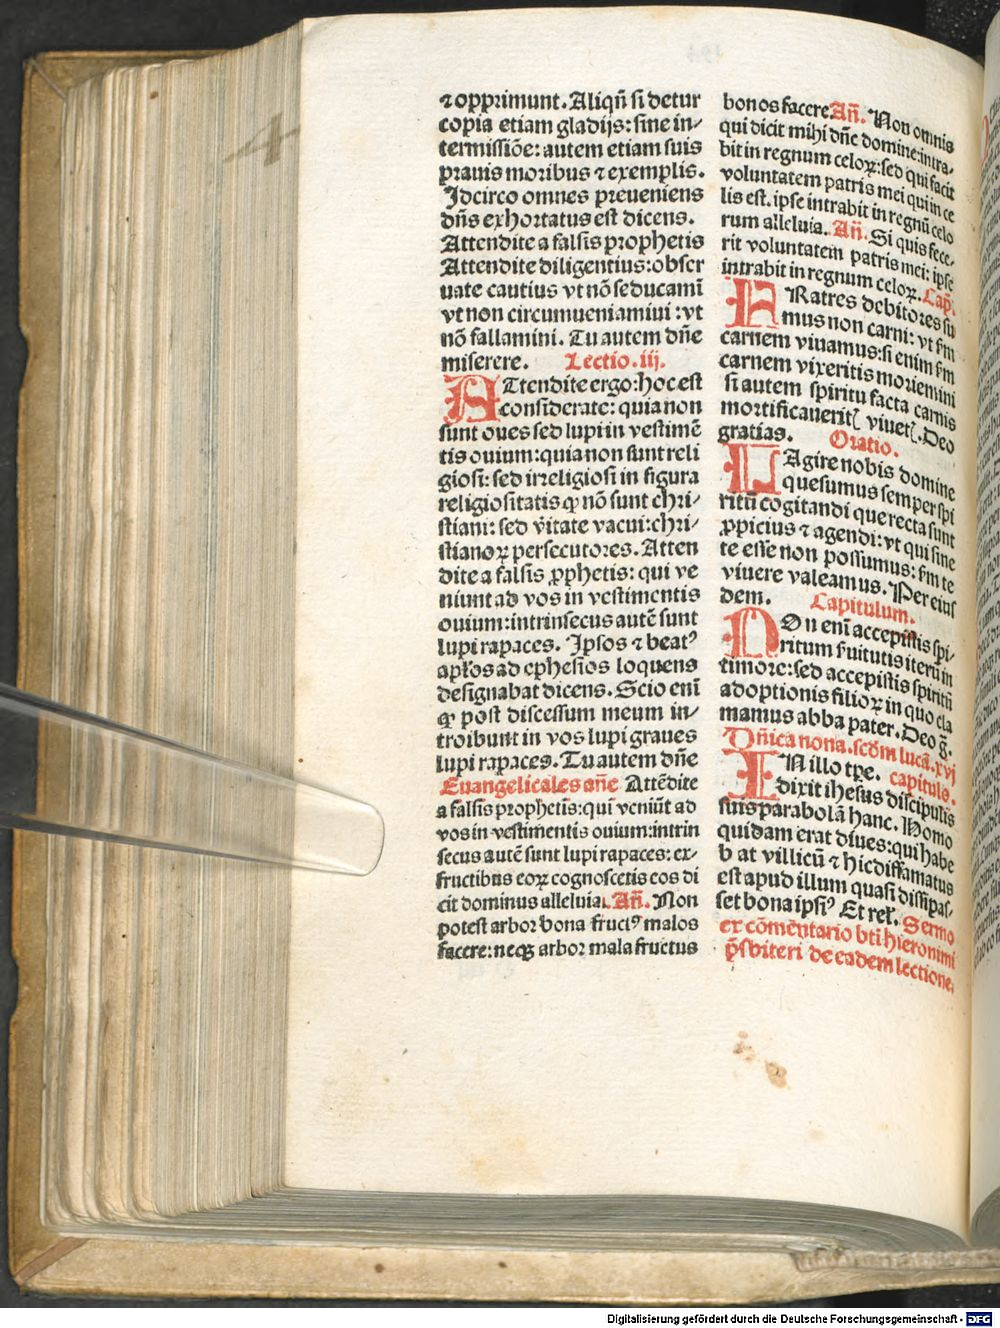 ⁊ opprimunt. Aliqñ si detur
copia etiam gladijs: sine in-
termissiõe: autem etiam suis
prauis moribus ⁊ exemplis.
Idcirco omnes preueniens
dñs exhortatus est dicens.
Attendite a falsis prophetis
Attendite diligentius: obser
uate cautius vt nõ seducami
vt non circumueniamini: vt
nõ fallamini. Tu autem dñe
miserere. Lectio. iij.
ATtendite ergo: hoc est
considerate: quia non
sunt oues sed lupi in vestimẽ
tis ouium: quia non sunt reli
giosi: sed irreligiosi in figura
religiositatis ꝙ nõ sunt chri-
stiani: sed v̑itate vacui: chri-
stianoꝝ persecutores. Atten
dite a falsis ꝓphetis: qui ve
niunt ad vos in vestimentis
ouium: intrinsecus autẽ sunt
lupi rapaces. Ipsos ⁊ beatꝰ
apl̃os ad ephesios loquens
designabat dicens. Scio eni̅
ꝙ post discessum meum in-
troibunt in vos lupi graues
lupi rapaces. Tu autem dñe
Euangelicales añe Attẽdite
a falsis prophetis: qui veniũt ad
vos in vestimentis ouium: intrin
secus autẽ sunt lupi rapaces: ex-
fructibus eoꝝ cognoscetis eos di
cit dominus alleluia. Añ. Non
potest arbor bona fructꝰ malos
facere: neqꝫ arbor mala fructus
bonos facere Añ. Non omnis
qui dicit mihi dñe domine: intra-
bit in regnum celoꝝ: sed qui facit
voluntatem patris mei qui in ce
lis est. ipse intrabit in regnũ celo
rum alleluia. Añ. Si quis fece-
rit voluntatem patris mei: ipse
intrabit in regnum celoꝝ. Cap̃.
FRatres debitores su
mus non carni: vt fm
carnem viuamus: si enim fm
carnem vixeritis moriemini
si autem spiritu facta carnis
mortificaueritꝭ viuetꝭ. Deo
gratias. Oratio.
LAgire nobis domine
quesumus semper spi
ritũ cogitandi que recta sunt
ꝓpicius ⁊ agendi: vt qui sine
te esse non possumus: fm te
viuere valeamus. Per eius
dem. Capitulum.
NOn eni̅ accepistis spi-
ritum ẜuitutis iterũ in
timore: sed accepistis spiritũ
adoptionis filioꝝ in quo cla
mamus abba pater. Deo g̃.
Dñica nona. scd̃m lucã. xvj
capitulo.
IN illo tp̃e.
dixit ihesus discipulis
suis parabolã hanc. Homo
quidam erat diues: qui habe
bat villicũ ⁊ hic diffamatus
est apud illum quasi dissipas-
set bona ipsiꝰ Et rel̃. Sermo
ex cõmẽtario bti̅ hieronimi
p̃sbiteri de eadem lectione.
Digitalisierung gefördert durch die Deutsche Forschungsgemeinschaft - DFG